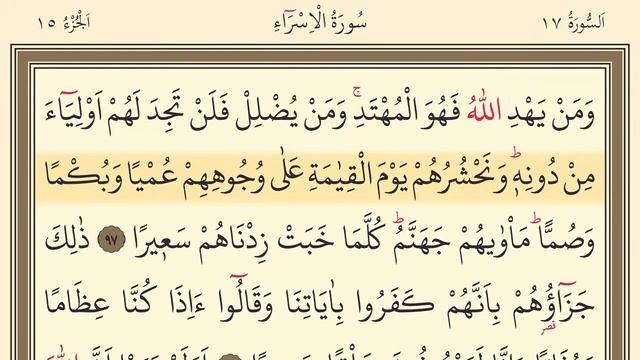 اَلسُّورَةُ ١٧ سُورَةُ الْاِسْرَٓاءِ اَلْجُزْءُ ١٥
وَمَنْ يَهْدِ اللّٰهُ فَهُوَ الْمُهْتَدِۚ وَمَنْ يُضْلِلْ فَلَنْ تَجِدَ لَهُمْ اَوْلِيَٓاءَ
مِنْ دُونِه۪ۜ وَنَحْشُرُهُمْ يَوْمَ الْقِيٰمَةِ عَلٰى وُجُوهِهِمْ عُمْيًا وَبُكْمًا
وَصُمًّاۜ مَأْوٰيهُمْ جَهَنَّمُۜ كُلَّمَا خَبَتْ زِدْنَاهُمْ سَع۪يرًا ٩٧ ذٰلِكَ
جَزَٓاؤُ۬هُمْ بِاَنَّهُمْ كَفَرُوا بِاٰيَاتِنَا وَقَالُٓوا ءَاِذَا كُنَّا عِظَامًا